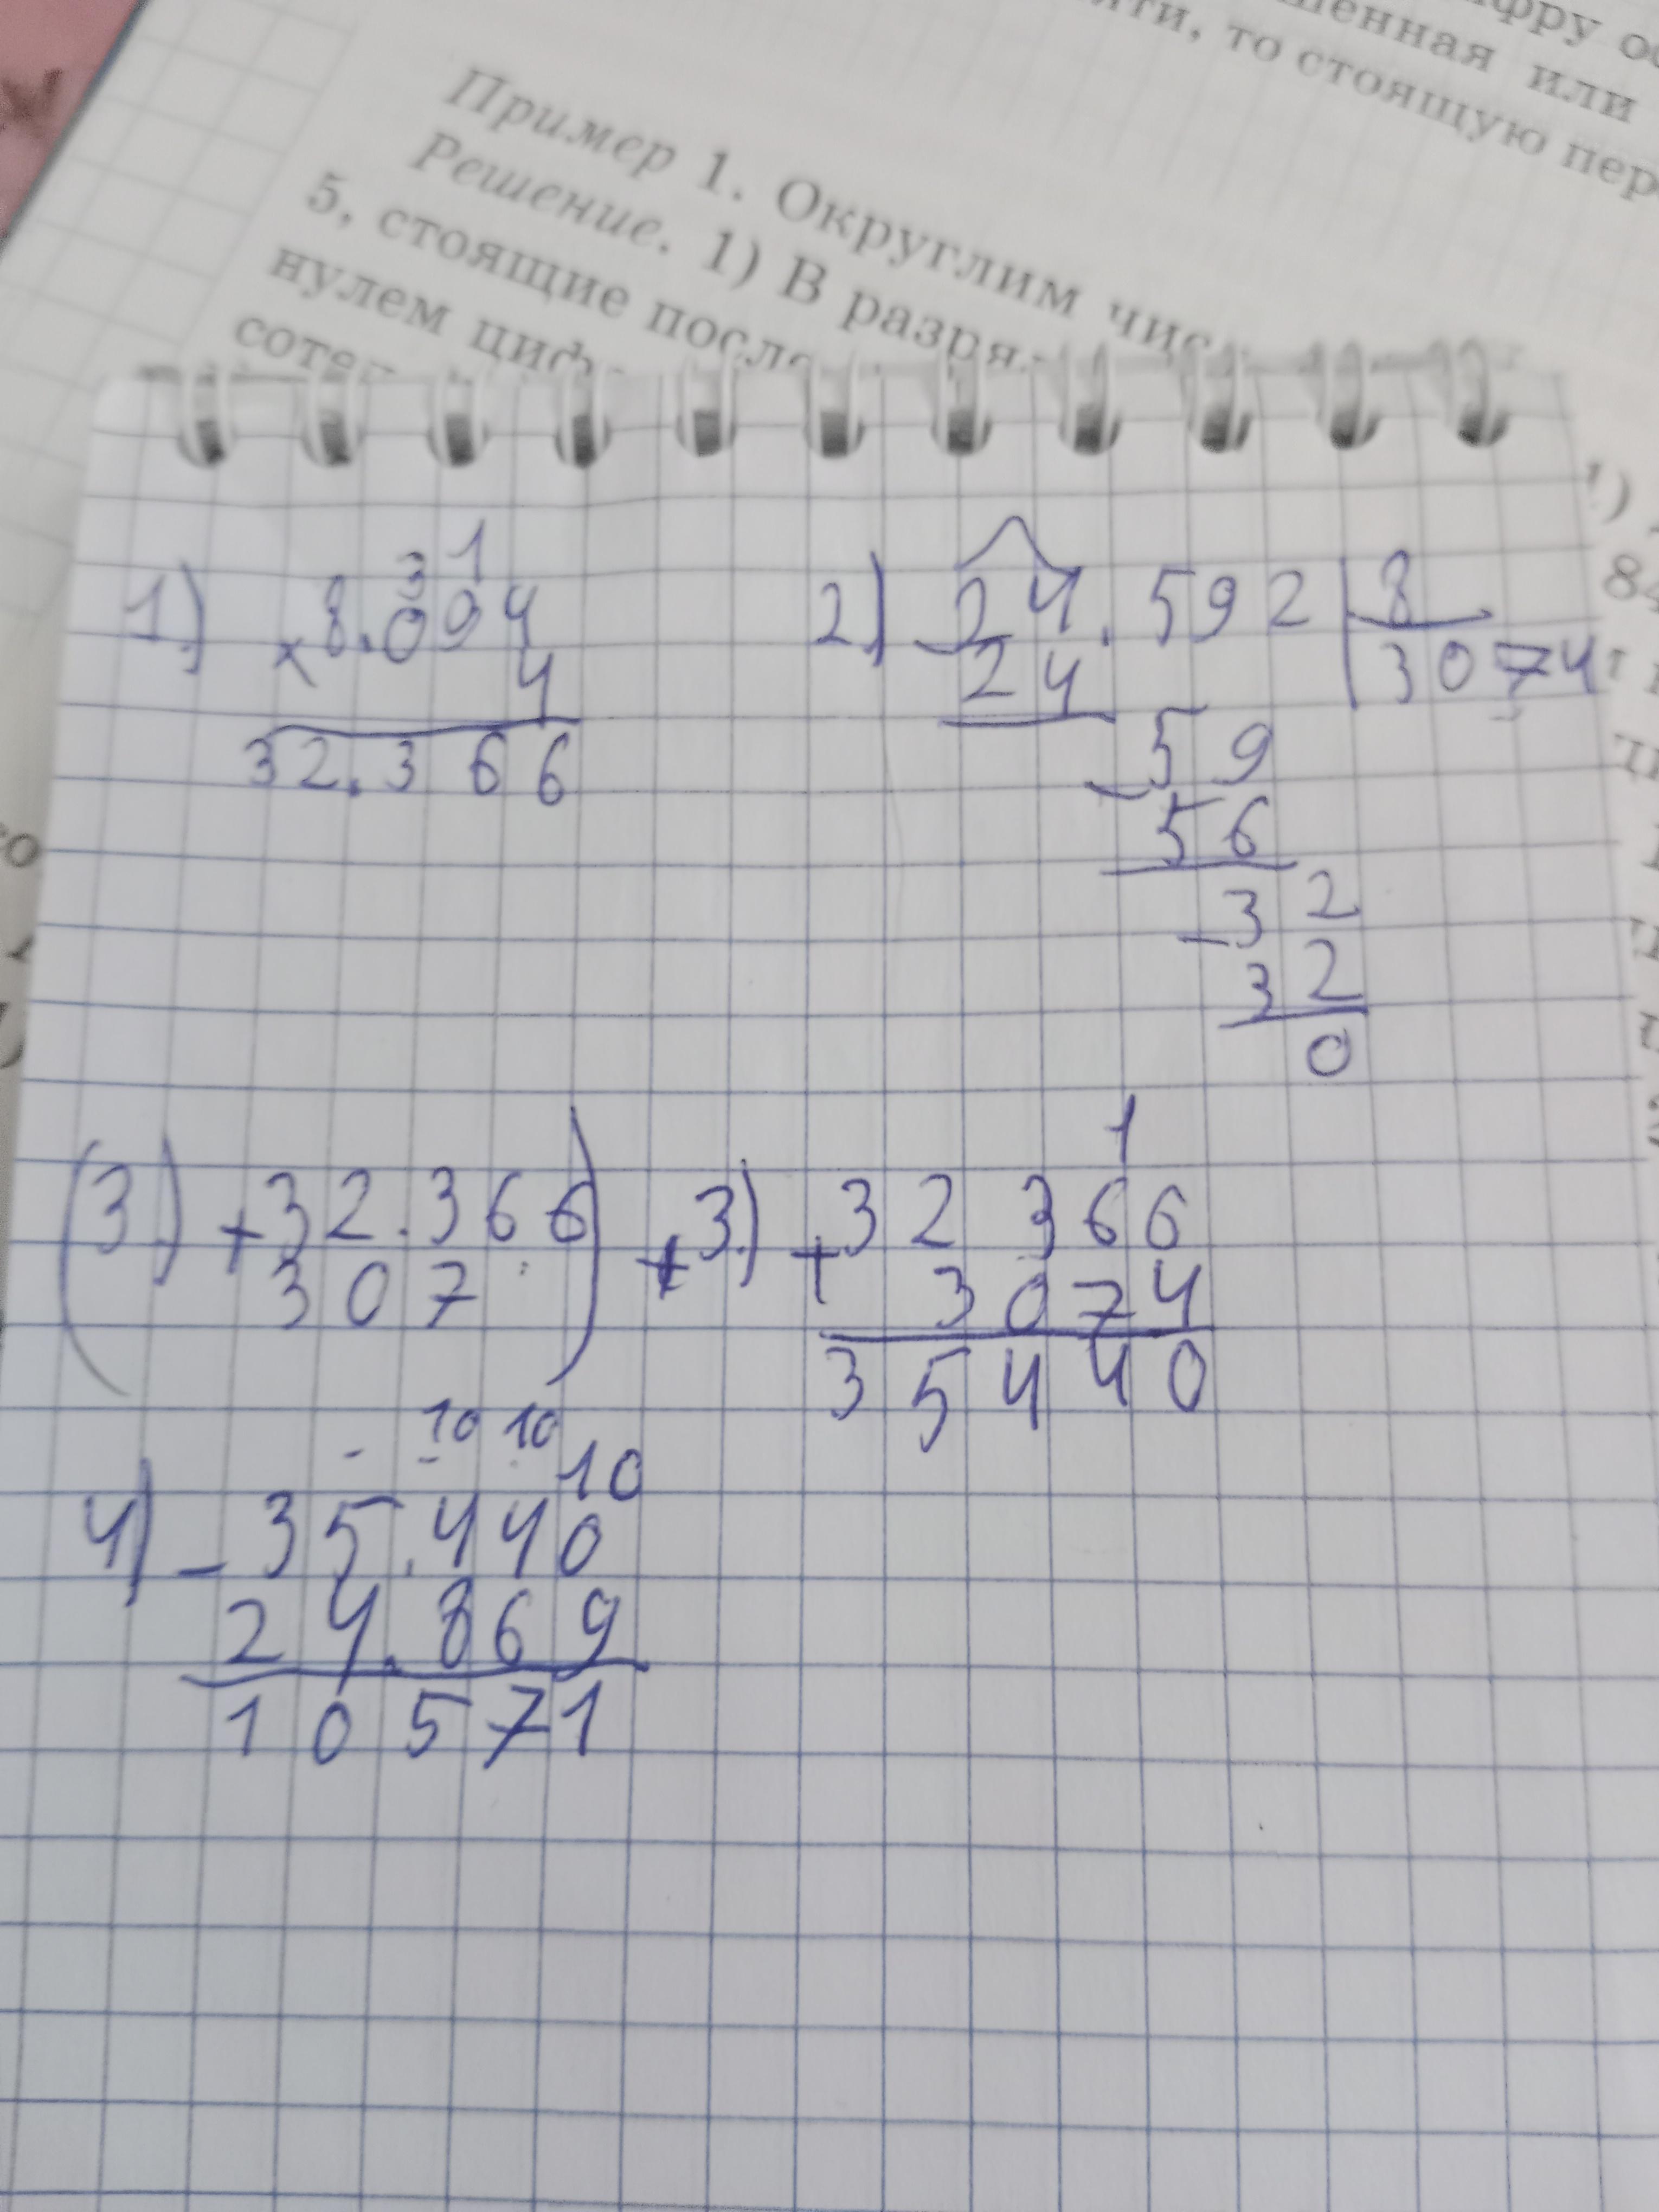 ифру
шенная или
яти, то стоящую пер
Пример 1. Округлим чис
Решение. 1) В разря
5, стоящие посл
нулем циф
соте
84
1) × 8.094
3 1
4
32.366
2) - 24.592 | 8
24 3074
- 59
56
- 32
32
0
(3.) + 32.366)
307
+ 3.) + 32 366
1
3074
35440
4) - 35.440
10 10 10
24.869
10571